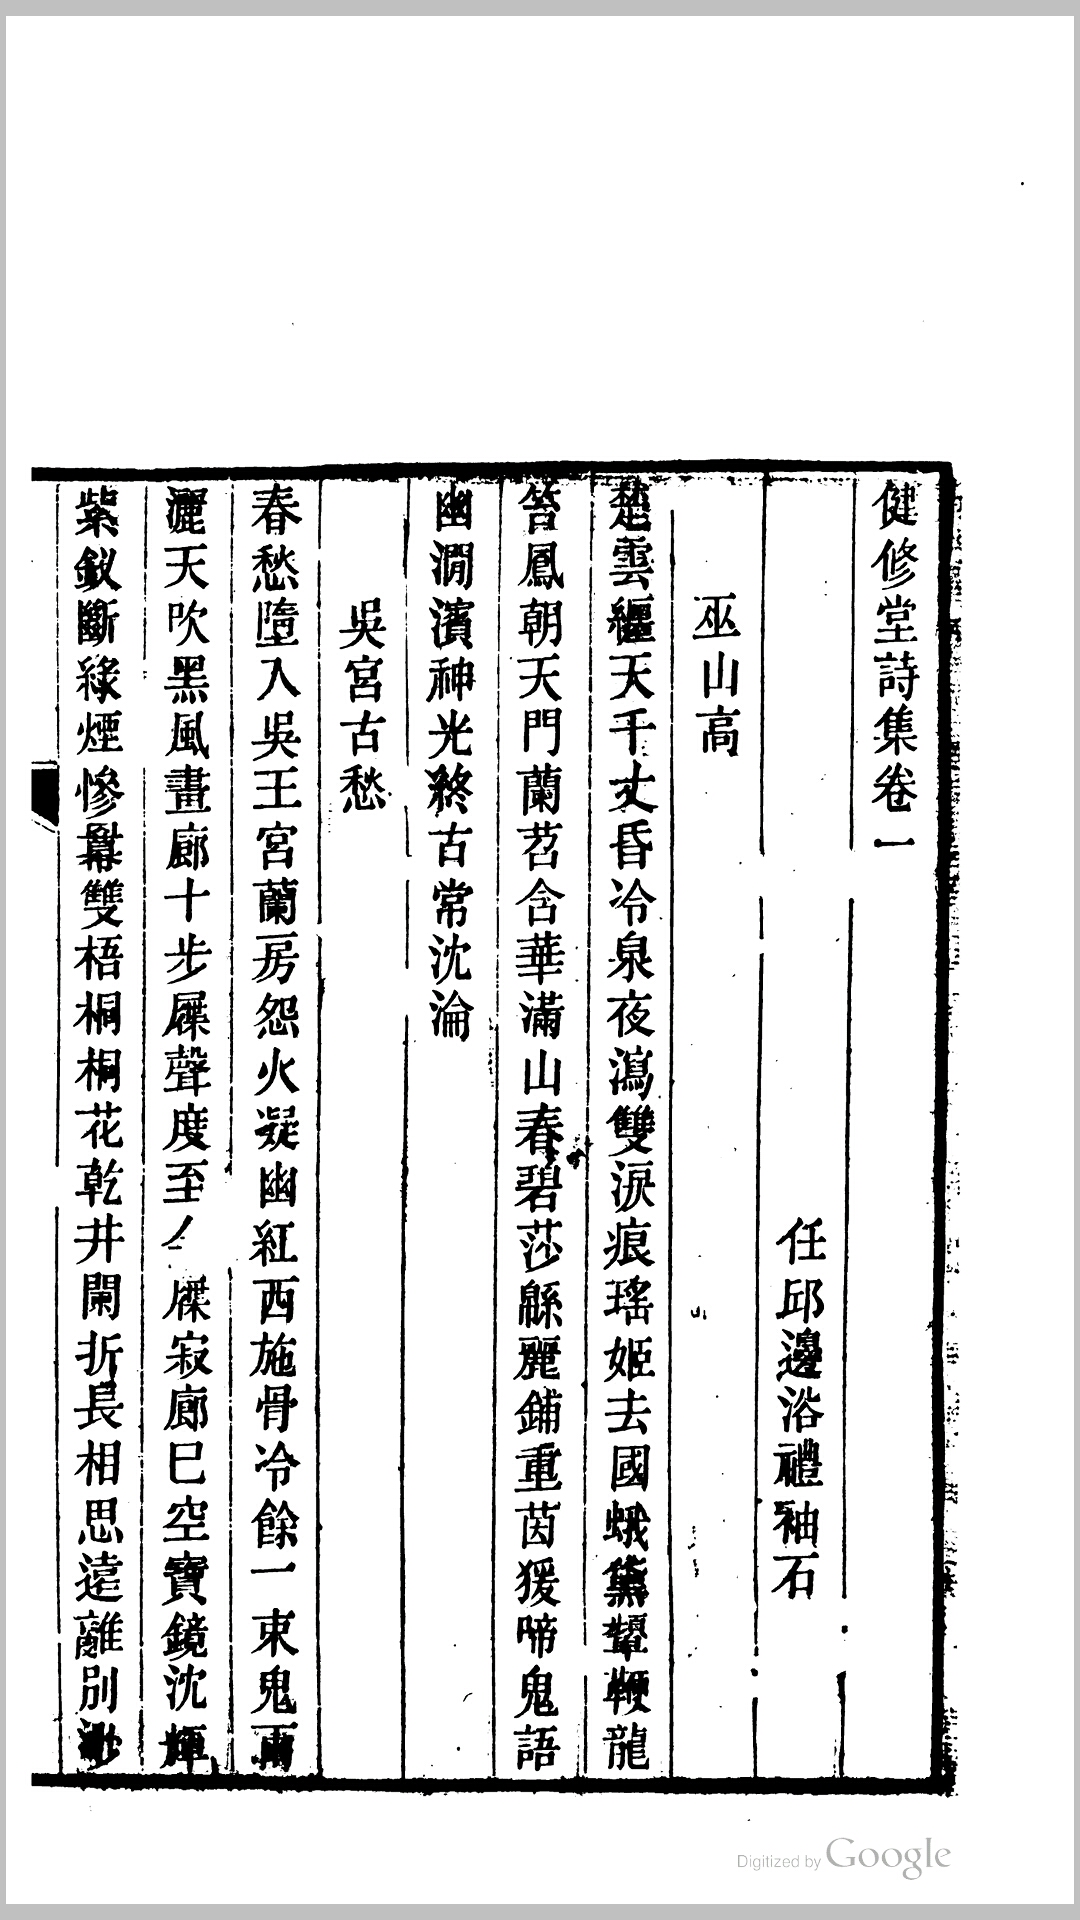 健修堂詩集卷一
任邱邊浴禮袖石
巫山高
楚雲纏天千丈昏冷泉夜瀉雙淚痕瑤姬去國蛾黛顰鞭龍
笞鳳朝天門蘭苕含華滿山春碧莎緜麗鋪重茵猨啼鬼語
幽澗濱神光終古常沈淪
吳宮古愁
春愁墮入吳王宮蘭房怨火凝幽紅西施骨冷餘一束鬼雨
灑天吹黑風畫廊十步屧聲度至今屧寂廊巳空寶鏡沈輝
紫釵斷綠煙慘幕雙梧桐桐花乾井闌折長相思遠離別
Digitized by Google